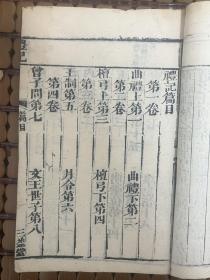 禮記篇目
第一卷
曲禮上第一
曲禮下第二
第二卷
檀弓上第三
檀弓下第四
第三卷
王制第五
月令第六
第四卷
曾子問第七
文王世子第八
禮記
篇目